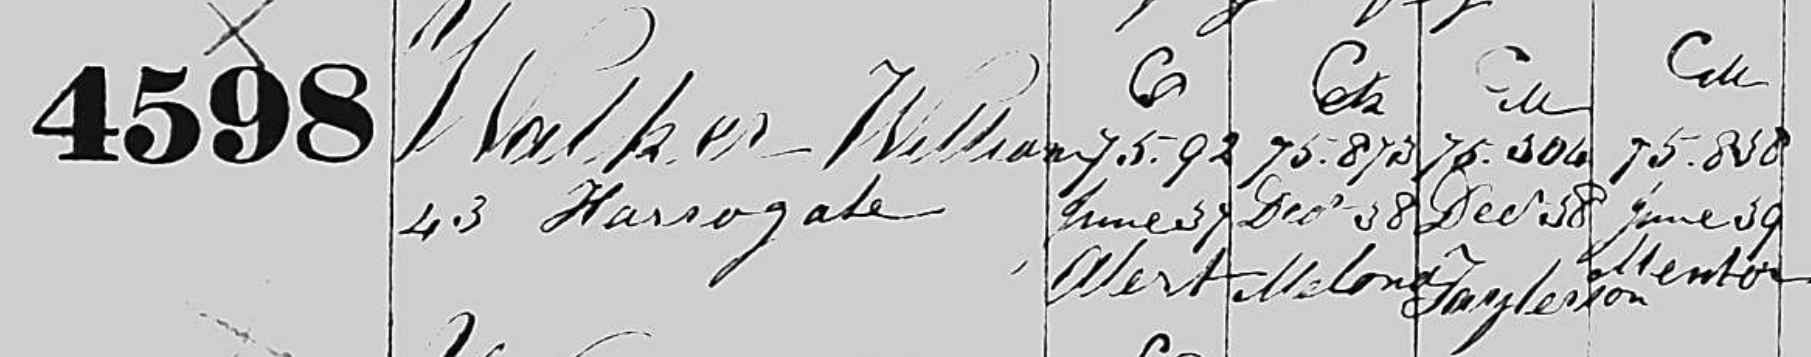 4598
Walker William
43 Harrogate
75.92 75.873 75.304 75.838
June 37 Decr 38 Decr 38 June 39
Alert Melona Taylerson Mentor